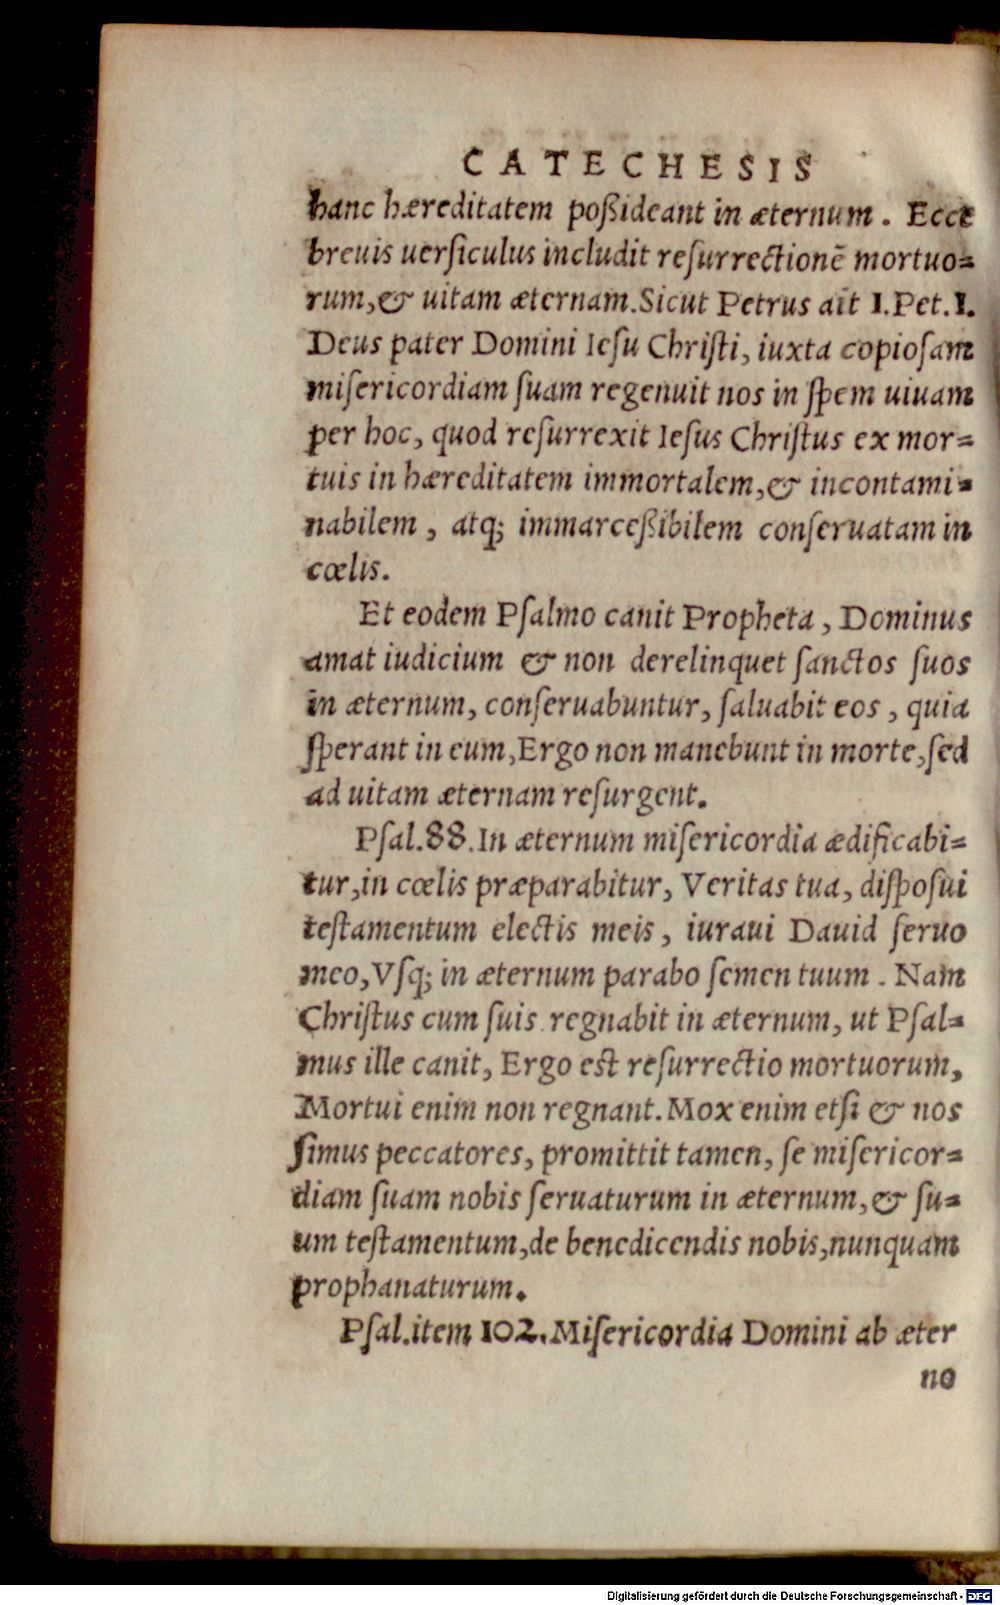 CATECHESIS
hanc hæreditatem poßideant in æternum. Ecce
breuis uerſiculus includit reſurrectionē mortuo=
rum,& uitam æternam.Sicut Petrus ait I.Pet.I.
Deus pater Domini Ieſu Chriſti, iuxta copioſam
miſericordiam ſuam regenuit nos in ſpem uiuam
per hoc, quod reſurrexit Ieſus Chriſtus ex mor=
tuis in hæreditatem immortalem,& incontami=
nabilem, atq; immarceßibilem conſeruatam in
cœlis.
Et eodem Pſalmo canit Propheta, Dominus
amat iudicium & non derelinquet ſanctos ſuos
in æternum, conſeruabuntur, ſaluabit eos, quia
ſperant in eum,Ergo non manebunt in morte,ſed
ad uitam æternam reſurgent.
Pſal.88.In æternum miſericordia ædificabi=
tur,in cœlis præparabitur, Veritas tua, diſpoſui
teſtamentum electis meis, iuraui Dauid ſeruo
meo,Vſq; in æternum parabo ſemen tuum. Nam
Chriſtus cum ſuis regnabit in æternum, ut Pſal=
mus ille canit, Ergo est reſurrectio mortuorum,
Mortui enim non regnant.Mox enim etſi & nos
ſimus peccatores, promittit tamen, ſe miſericor=
diam ſuam nobis ſeruaturum in æternum,& ſu=
um teſtamentum,de benedicendis nobis,nunquam
prophanaturum.
Pſal.item 102.Miſericordia Domini ab æter
no
Digitalisierung gefördert durch die Deutsche Forschungsgemeinschaft - DFG